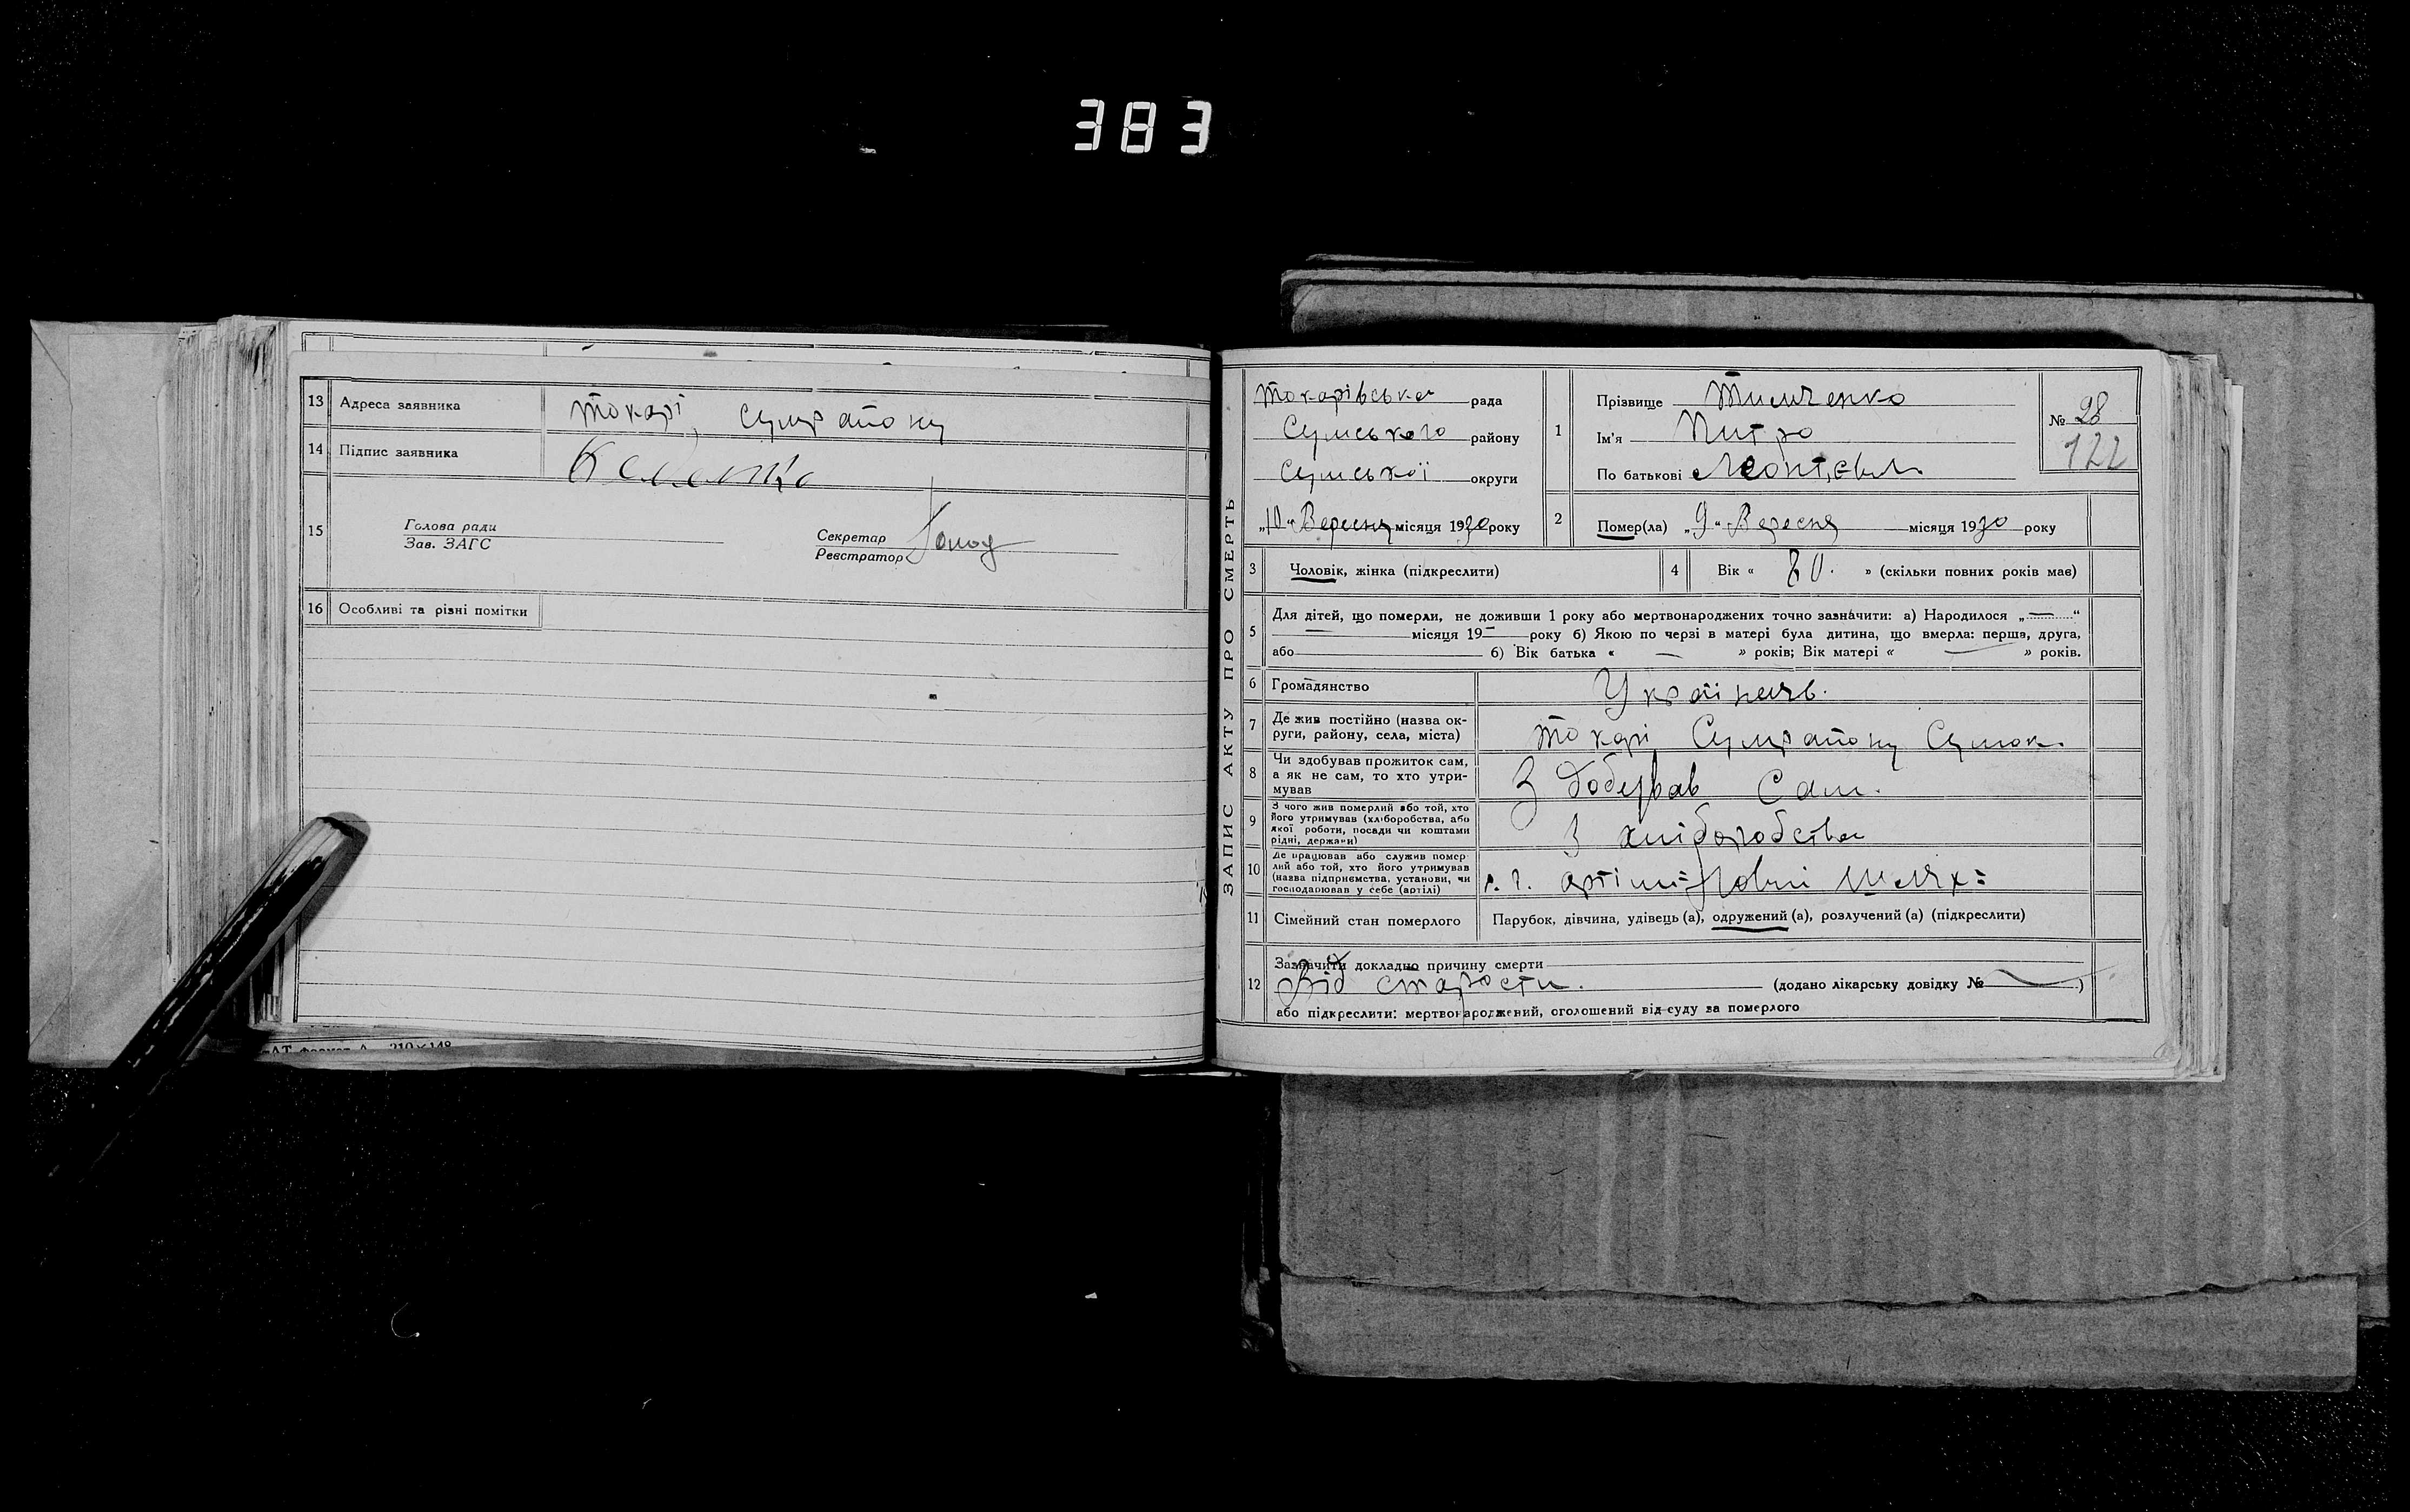 383
13 Адреса заявника Токарі, Сумрайону
14 Підпис заявника
15 Голова ради
Зав. ЗАГС
Секретар
Реєстратор
16 Особливі та різні помітки
210×148
ЗАПИС АКТУ ПРО СМЕРТЬ
Токарівська рада
Сумського району
Сумської округи
„10“ Вересня місяця 1930 року
1 Прізвище Тимченко
Ім'я Митро
По батькові
№ 28
122
2 Помер(ла) „9“ Вересня місяця 1930 року
3 Чоловік, жінка (підкреслити)
4 Вік « 80. » (скільки повних років має)
5 Для дітей, що померли, не доживши 1 року або мертвонароджених точно зазначити: а) Народилося „—“
— місяця 19— року б) Якою по черзі в матері була дитина, що вмерла: перша, друга,
або — б) Вік батька « — » років; Вік матері « — » років.
6 Громадянство Українець.
7 Де жив постійно (назва ок-
руги, району, села, міста)
Токарі Сумрайону Сумок.
8 Чи здобував прожиток сам,
а як не сам, то хто утри-
мував
Здобував Сам.
9 З чого жив померлий або той, хто
його утримував (хліборобства, або
якої роботи, посади чи коштами
рідні, держави)
З хліборобства
10 Де працював або служив помер-
лий або той, хто його утримував
(назва підприємства, установи, чи
господарював у себе (артілі)
артіль Новий Шлях=
11 Сімейний стан померлого Парубок, дівчина, удівець (а), одружений (а), розлучений (а) (підкреслити)
12 Зазначити докладно причину смерти
Від старости. (додано лікарську довідку № — )
або підкреслити: мертвонароджений, оголошений від суду за померлого